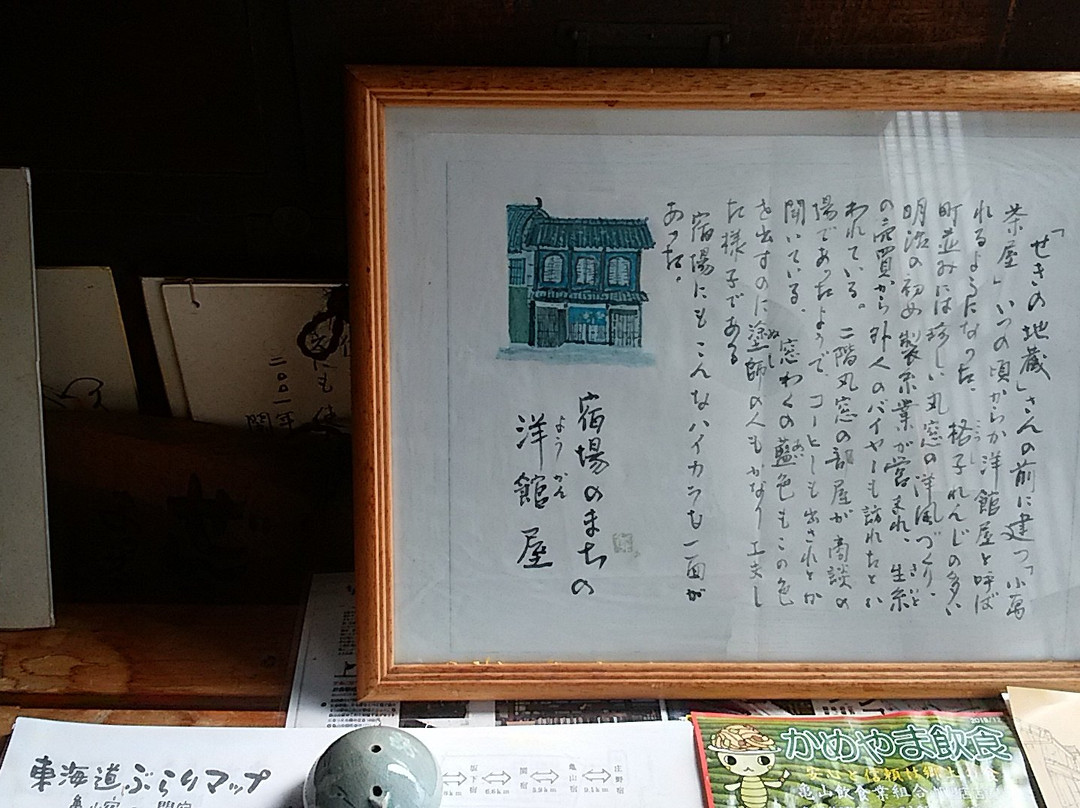 「せきの地蔵」さんの前に建つ「小萬
茶屋」いつの頃からか洋館屋と呼ば
れるようになった。格子れんじの多い
こうし
町並みには珍しい丸窓の洋風づくり、
明治の初め製糸業が営まれ、生糸
きいと
の売買から外人のバイヤーも訪れたとい
われている。二階丸窓の部屋が商談の
場であったようで、コーヒーも出されたとか
聞いている。窓わくの藍色もこの色
あい
を出すのに塗師の人もかなり工夫し
ぬし
た様子である
宿場にもこんなハイカラな一面が
あった。
宿場のまちの
洋館屋
ようかん
二〇〇一年
関
東海道ぶらりマップ
亀山宿
関宿
坂下宿
関宿
亀山宿
庄野宿
2018/12
かめやま飲食
安心と信頼
亀山飲食業組合